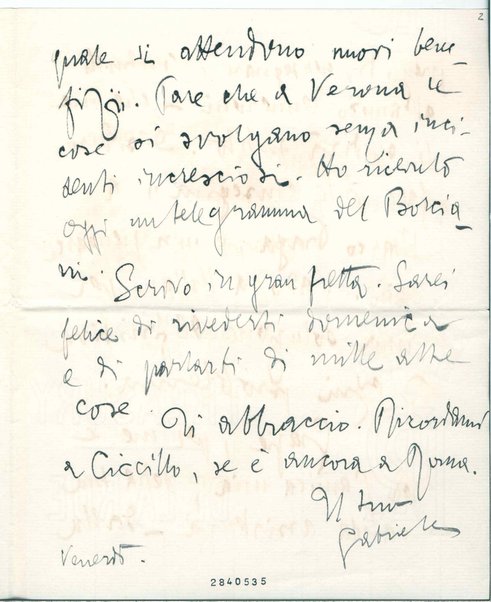 2
quale si attendono nuovi bene-
fizii. Pare che a Verona le
cose si svolgano senza inci-
denti incresciosi. Ho ricevuto
oggi un telegramma del Borcia-
ni.
Scrivo in gran fretta. Sarei
felice di rivederti domenica
e di parlarti di mille altre
cose. Ti abbraccio. Ricordami
a Ciccillo, se è ancora a Roma.
Il tuo
Gabriele
Venerdì.
2840535